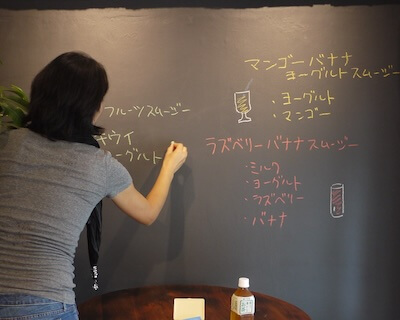 フルーツスムージー
キウイ
ヨーグルト
マンゴーバナナ
ヨーグルトスムージー
・ヨーグルト
・マンゴー
ラズベリーバナナスムージー
・ミルク
・ヨーグルト
・ラズベリー
・バナナ